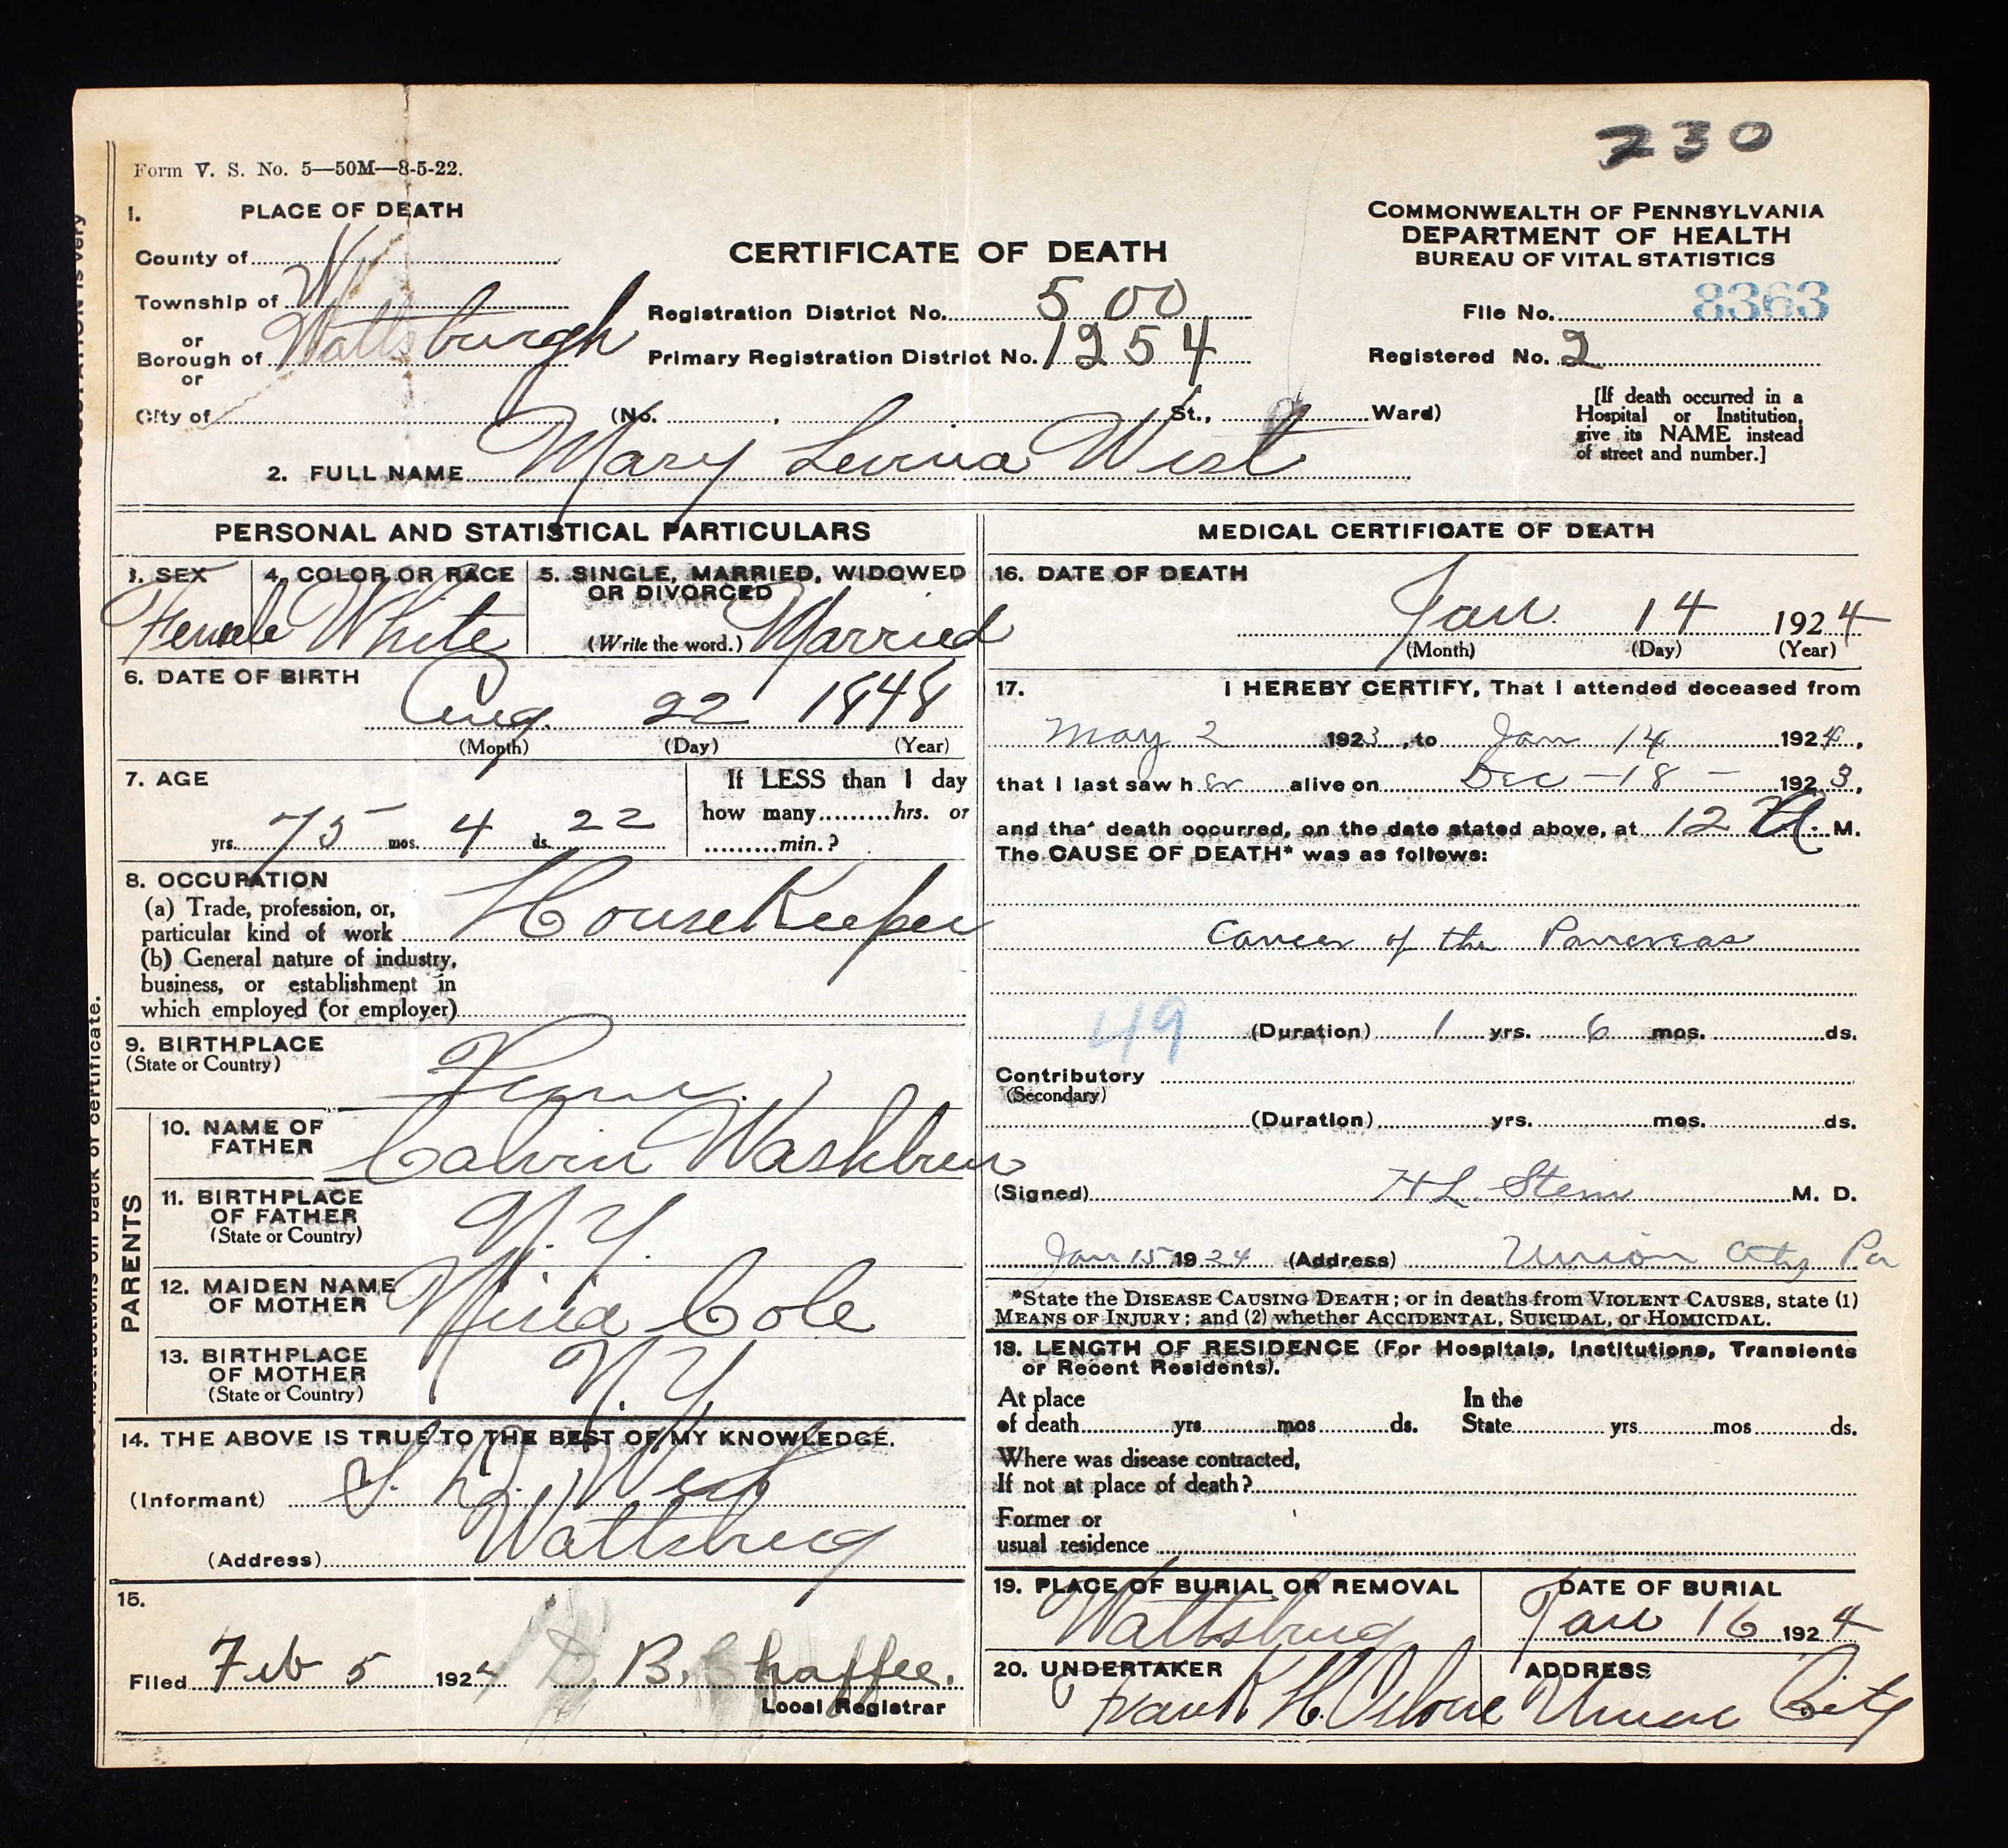 230
Form V. S. No. 5—50M—8-5-22.
1. PLACE OF DEATH
County of
Township of
or
Borough of Wattsburgh
or
City of
(No. , St., Ward)
CERTIFICATE OF DEATH
Registration District No. 500
Primary Registration District No. 1254
COMMONWEALTH OF PENNSYLVANIA
DEPARTMENT OF HEALTH
BUREAU OF VITAL STATISTICS
File No. 8363
Registered No. 2
[If death occurred in a
Hospital or Institution,
give its NAME instead
of street and number.]
2. FULL NAME Mary West
PERSONAL AND STATISTICAL PARTICULARS
3. SEX
Female
4. COLOR OR RACE
White
5. SINGLE, MARRIED, WIDOWED
OR DIVORCED
(Write the word.) Married
6. DATE OF BIRTH
Aug. 22 1848
(Month) (Day) (Year)
7. AGE
yrs. 75 mos. 4 ds. 22
If LESS than 1 day
how many hrs. or
min.?
8. OCCUPATION
(a) Trade, profession, or,
particular kind of work HouseKeeper
(b) General nature of industry,
business, or establishment in
which employed (or employer)
9. BIRTHPLACE
(State or Country)
Penn.
PARENTS
10. NAME OF
FATHER
Calvin Washburn
11. BIRTHPLACE
OF FATHER
(State or Country)
N.Y.
12. MAIDEN NAME
OF MOTHER
Cole
13. BIRTHPLACE
OF MOTHER
(State or Country)
N.Y.
14. THE ABOVE IS TRUE TO THE BEST OF MY KNOWLEDGE.
(Informant) West
(Address) Wattsburg
15.
Filed Feb 5 1924 D. B. Chaffee.
Local Registrar
MEDICAL CERTIFICATE OF DEATH
16. DATE OF DEATH
Jan. 14 1924
(Month) (Day) (Year)
17. I HEREBY CERTIFY, That I attended deceased from
May 2 1923, to Jan 14 1924,
that I last saw her alive on Dec - 18 - 1923,
and that death occurred, on the date stated above, at 12 A. M.
The CAUSE OF DEATH* was as follows:
Cancer of the Pancreas
49
(Duration) 1 yrs. 6 mos. ds.
Contributory
(Secondary)
(Duration) yrs. mos. ds.
(Signed) H L Stem M. D.
Jan 15 1924 (Address) Union City Pa
*State the DISEASE CAUSING DEATH; or in deaths from VIOLENT CAUSES, state (1)
MEANS OF INJURY; and (2) whether ACCIDENTAL, SUICIDAL, or HOMICIDAL.
18. LENGTH OF RESIDENCE (For Hospitals, Institutions, Transients
or Recent Residents).
At place
of death yrs mos ds.
In the
State yrs mos ds.
Where was disease contracted,
If not at place of death?
Former or
usual residence
19. PLACE OF BURIAL OR REMOVAL
Wattsburg
DATE OF BURIAL
Jan 16 1924
20. UNDERTAKER
Frank H.
ADDRESS
Union City